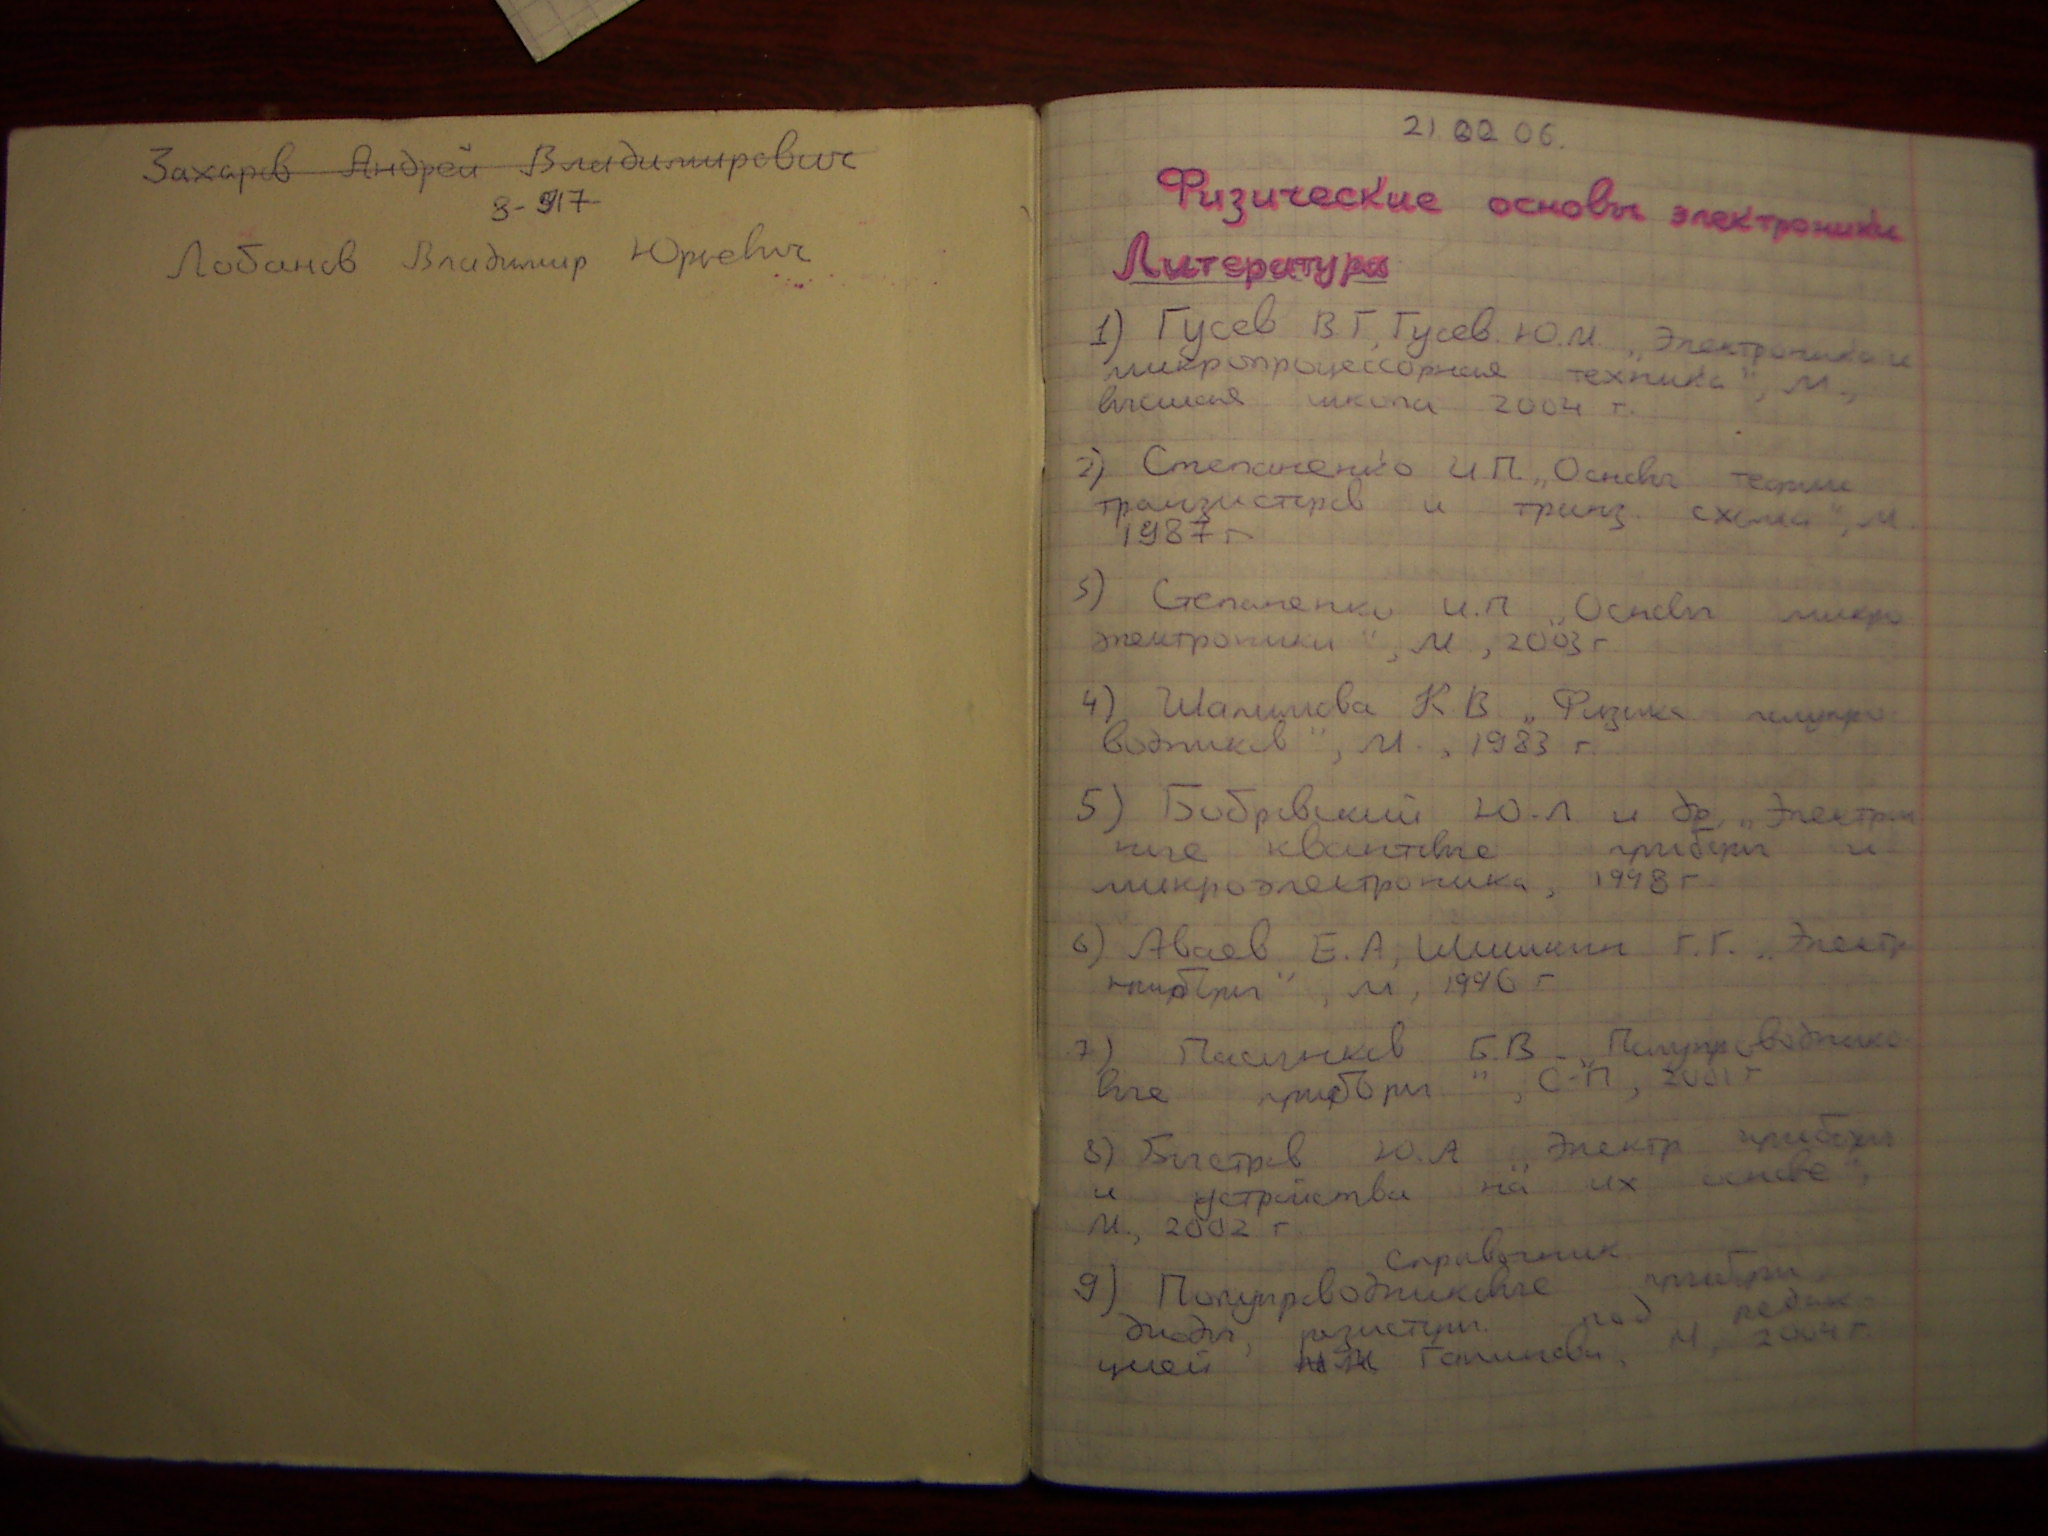 Захаров Андрей Владимирович
3-917
Лобанов Владимир Юрьевич
21.02 06.
Физические основы электроники
Литература
1) Гусев В Г, Гусев Ю.М. „Электроника и
микропроцессорная техника", М.,
высшая школа 2004 г.
2) Степаненко И П. „Основы теории
транзисторов и транз. схемы", М.
1987 г
3) Степаненко И.П „Основы микро
электроники", М, 2003 г
4) Шалимова К В „Физика полупро
водников", М., 1983 г.
5) Бобровский Ю.Л и др „Электрон
ные квантовые приборы и
микроэлектроника, 1998 г
6) Аваев Е.А, Шишкин Г.Г. „Электр
приборы", М, 1996 г
7) Пасынков В.В „Полупроводнико
вые приборы", С-П, 2001 г
8) Быстров Ю.А „Электр приборы
и устройства на их основе",
М., 2002 г
справочник
9) Полупроводниковые приборы
диоды, резисторы. под редак-
цией Галимова, М, 2004 г.